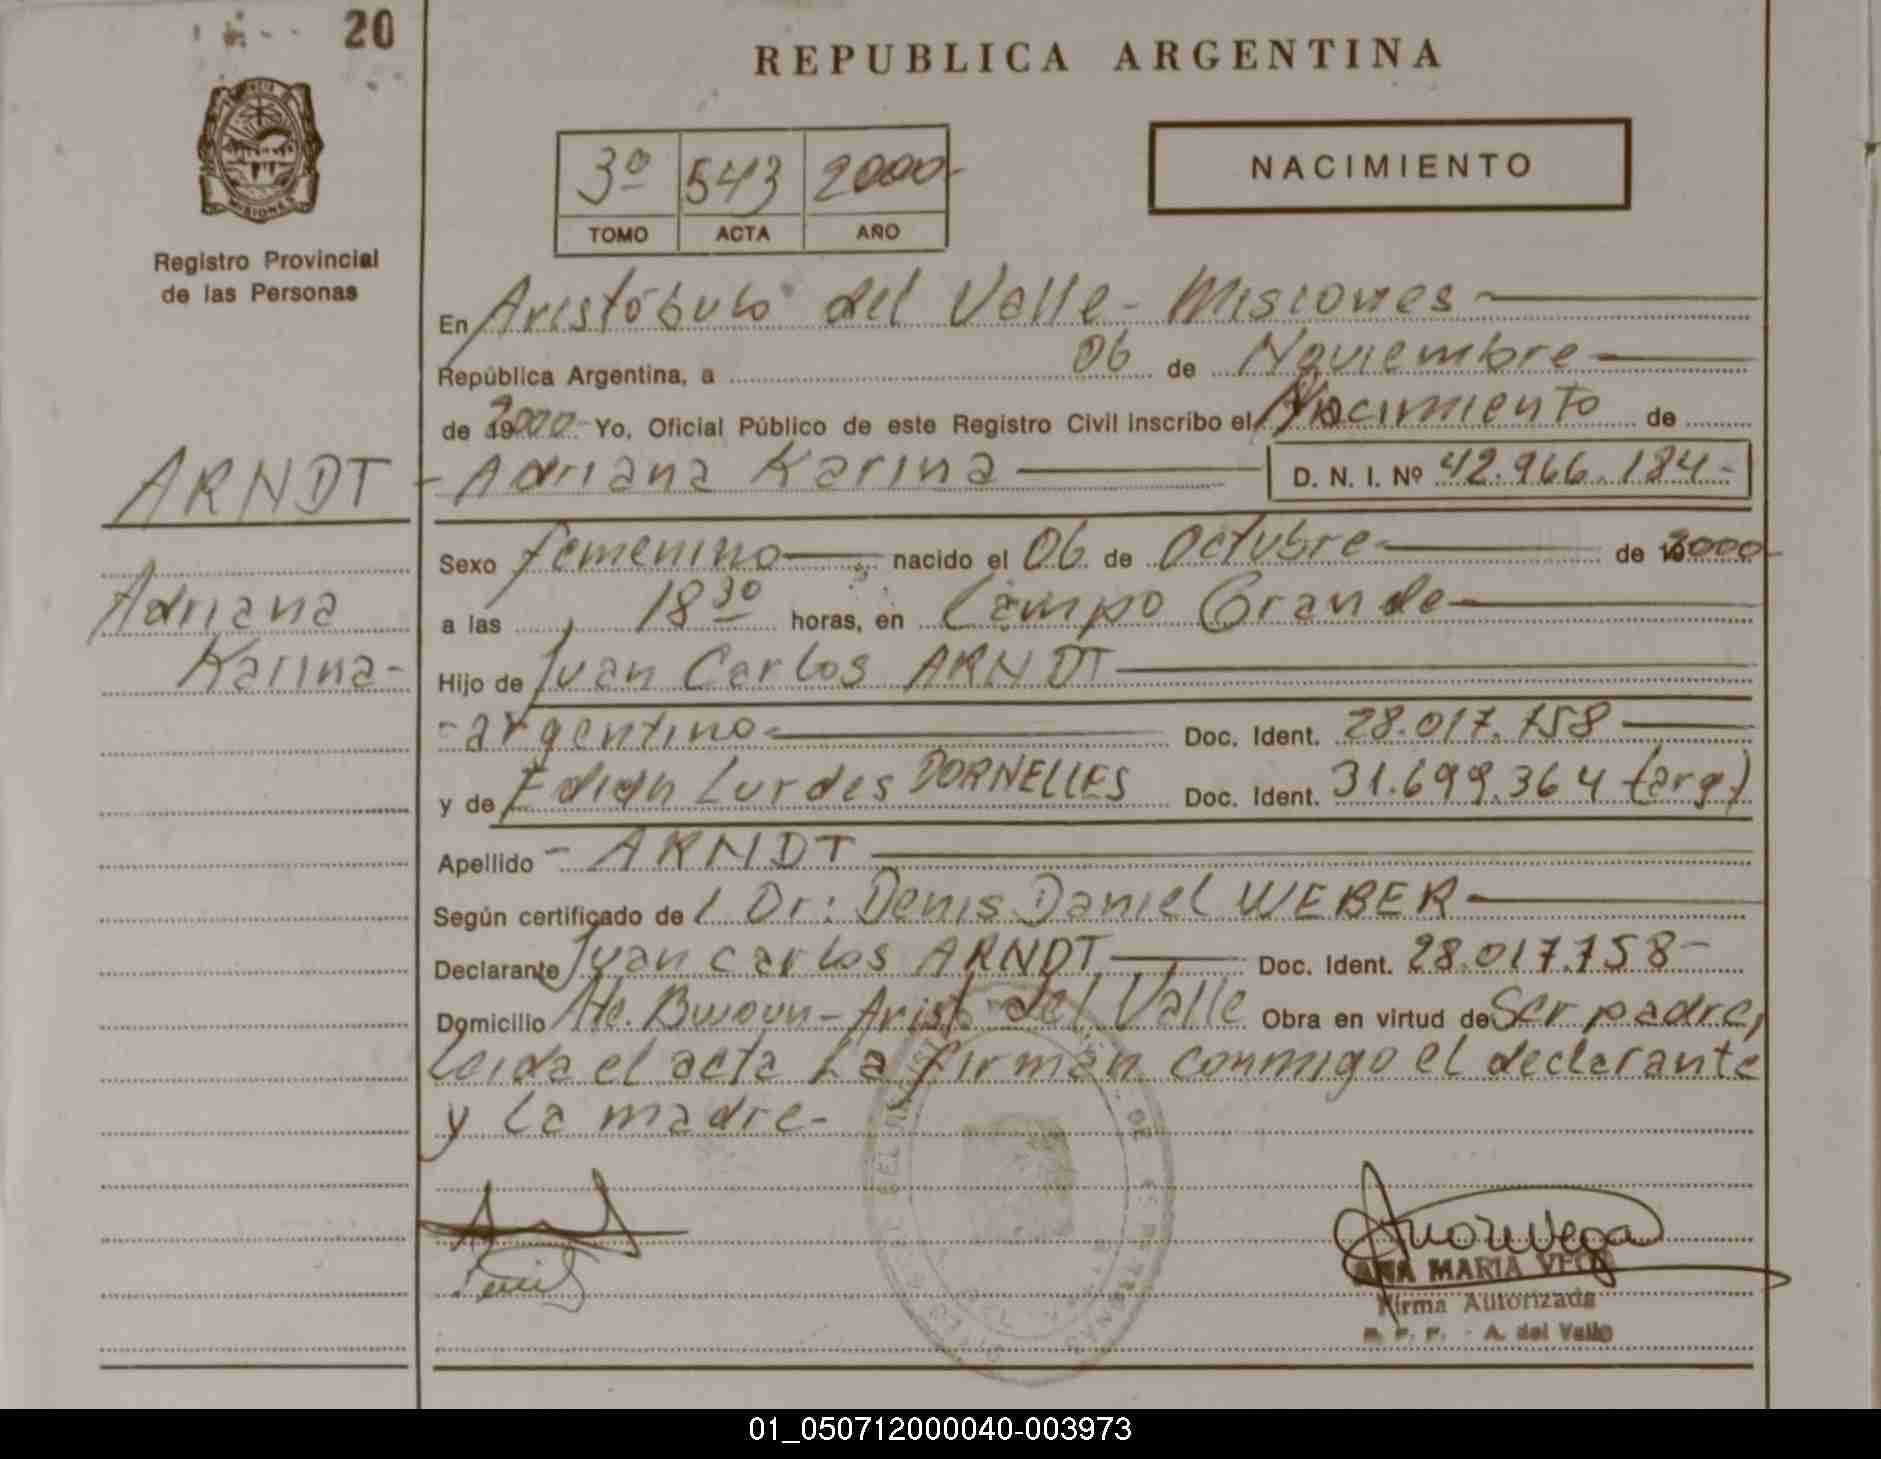 20
REPUBLICA ARGENTINA
3º 543 2000-
TOMO ACTA AÑO
NACIMIENTO
MISIONES
Registro Provincial
de las Personas
En Aristóbulo del Valle - Misiones
República Argentina, a 06 de Noviembre
de 2000- Yo, Oficial Público de este Registro Civil inscribo el Nacimiento de
ARNDT - Adriana Karina D. N. I. Nº 42.966.184-
Sexo femenino nacido el 06 de Octubre de 2000-
Adriana a las 18 30 horas, en Campo Grande
Karina- Hijo de Juan Carlos ARNDT
-argentino- Doc. Ident. 28.017.758
y de Lurdes DORNELLES Doc. Ident. 31.699.364 (arg)
Apellido - ARNDT
Según certificado de Dr: Denis Daniel WEBER
Declarante Juan Carlos ARNDT Doc. Ident. 28.017.758-
Domicilio Alte. Brown - Arist. del Valle Obra en virtud de Ser padre,
Leida el acta La firman conmigo el declarante
y La madre-
ANA MARIA VEGA
Firma Autorizada
A. del Valle
01_050712000040-003973